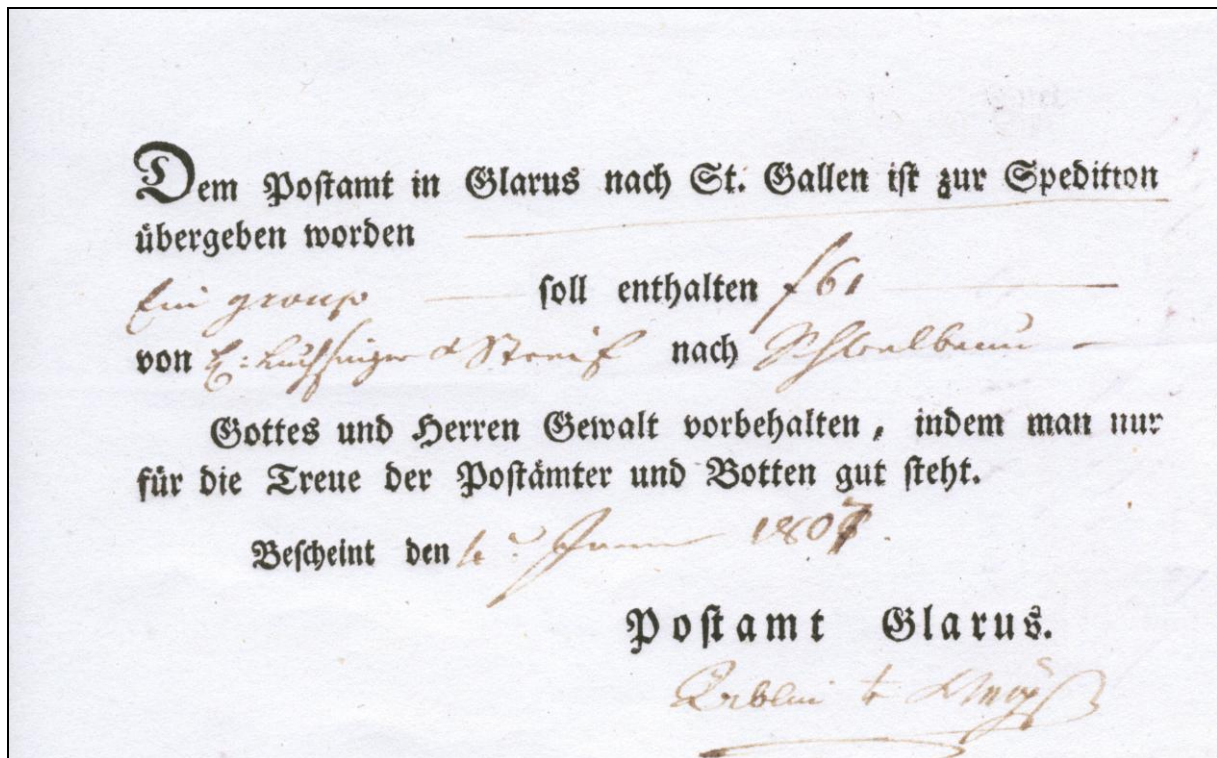 Dem Postamt in Glarus nach St. Gallen ist zur Spedition
übergeben worden
Ein group soll enthalten f 61
von Luchsinger & Streif nach
Gottes und Herren Gewalt vorbehalten, indem man nur
für die Treue der Postämter und Botten gut steht.
Bescheint den Juni 1807.
Postamt Glarus.